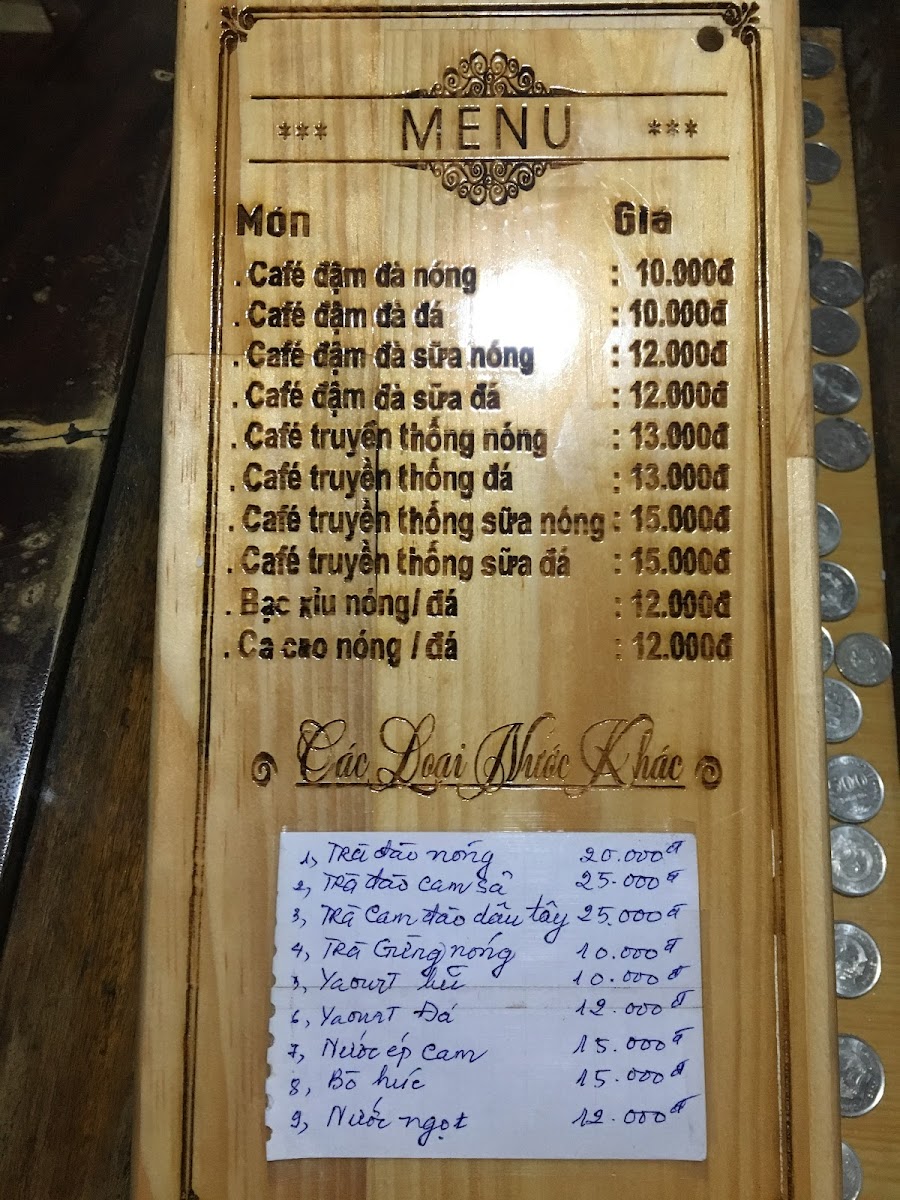 *** MENU ***
Món Giá
. Café đậm đà nóng : 10.000đ
. Café đậm đà đá : 10.000đ
. Café đậm đà sữa nóng : 12.000đ
. Café đậm đà sữa đá : 12.000đ
. Café truyền thống nóng : 13.000đ
. Café truyền thống đá : 13.000đ
. Café truyền thống sữa nóng : 15.000đ
. Café truyền thống sữa đá : 15.000đ
. Bạc xỉu nóng/ đá : 12.000đ
. Ca cao nóng / đá : 12.000đ
Các Loại Nước Khác
1, Trà đào nóng 20.000đ
2, Trà đào cam sả 25.000đ
3, Trà Cam đào dâu tây 25.000đ
4, Trà Gừng nóng 10.000đ
5, Yaourt hủ 10.000đ
6, Yaourt Đá 12.000đ
7, Nước ép cam 15.000đ
8, Bò húc 15.000đ
9, Nước ngọt 12.000đ